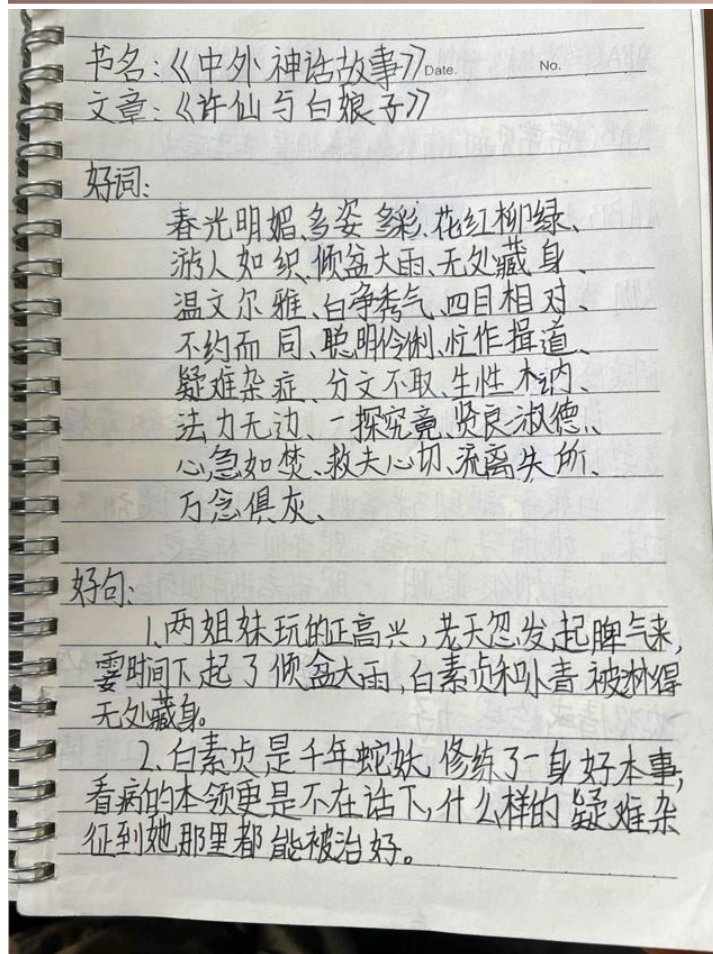 书名:《中外神话故事》Date. No.
文章:《许仙与白娘子》
好词:
春光明媚、多姿多彩、花红柳绿、
游人如织、倾盆大雨、无处藏身、
温文尔雅、白净秀气、四目相对、
不约而同、聪明伶俐、忙作揖道、
疑难杂症、分文不取、生性木讷、
法力无边、一探究竟、贤良淑德、
心急如焚、救夫心切、流离失所、
万念俱灰、
好句:
1、两姐妹玩的正高兴,老天忽发起脾气来,
霎时间下起了倾盆大雨,白素贞和小青被淋得
无处藏身。
2、白素贞是千年蛇妖,修练了一身好本事,
看病的本领更是不在话下,什么样的疑难杂
征到她那里都能被治好。